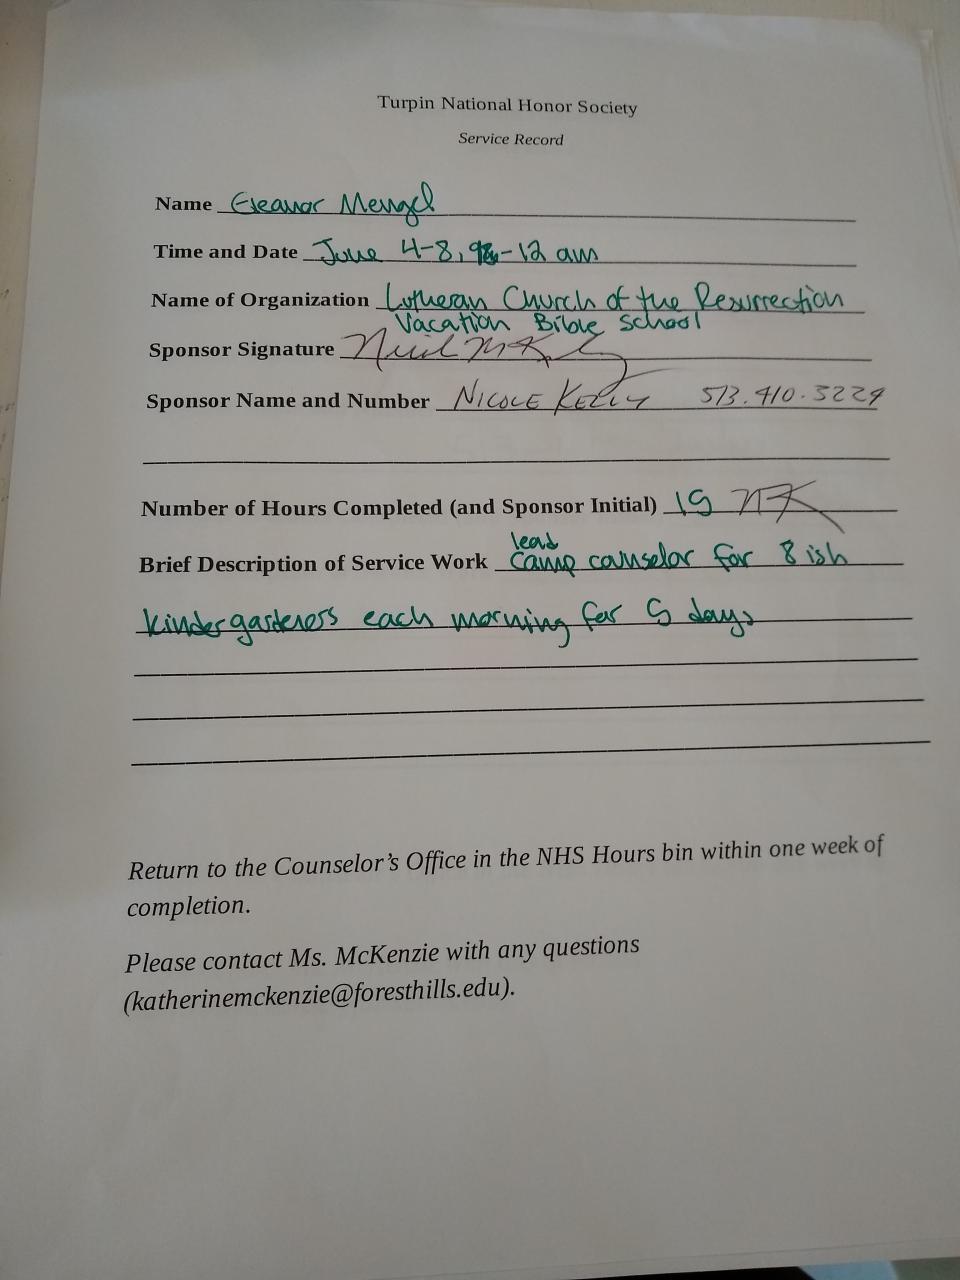 Turpin National Honor Society
Service Record
Name Eleanor Mengel
Time and Date June 4-8, 9-12 am
Name of Organization Lutheran Church of the Resurrection
Vacation Bible School
Sponsor Signature
Sponsor Name and Number Nicole Kelly 513.410.3229
Number of Hours Completed (and Sponsor Initial) 15 NK
lead
Brief Description of Service Work camp counselor for 8 ish
kindergarteners each morning for 5 days
Return to the Counselor's Office in the NHS Hours bin within one week of
completion.
Please contact Ms. McKenzie with any questions
(katherinemckenzie@foresthills.edu).